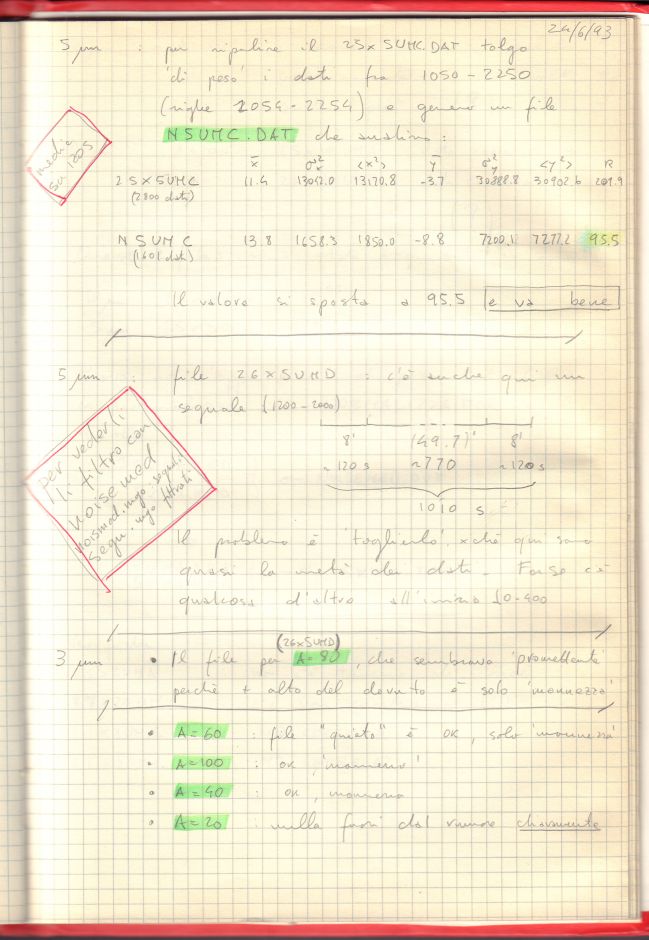 24/6/93
5 µm : per ripulire il 25x5UMC.DAT tolgo
'di peso' i dati fra 1050-2250
(righe 1054-2254) e genero un file
N5UMC.DAT che analizzo:
media
su 120s
x̄ σx² <x²> ȳ σy² <y²> R
25x5UMC 11.4 13042.0 13170.8 -3.7 30888.8 30902.6 209.9
(2800 dati)
N5UMC 13.8 1658.3 1850.0 -8.8 7200.1 7277.2 95.5
(1601 dati)
Il valore si sposta a 95.5 e va bene
5 µm : file 26x5UMD : c'è anche qui un
segnale (1200-2000)
8' (49.7)' 8'
~120 s ~770 ~120 s
1010 s
per vederli
li filtro con
noise med
noismed.mgo segnal.
segu..mgo filtrati
Il problema è 'toglierlo', xchè qui sono
quasi la metà dei dati. Forse c'è
qualcosa d'altro all'inizio 10-400
(26x5UMD)
3 µm • Il file per A=80, che sembrava 'promettente'
perchè + alto del dovuto è solo 'monnezza'
• A=60 : file "quieto" è OK, solo 'monnezza'
• A=100 : ok,
• A=40 : ok, monnezza
• A=20 : nulla fuori dal rumore chiaramente